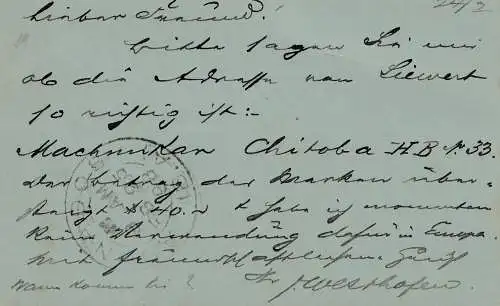 24/2
lieber Freund!
Bitte sagen Sie mir
ob die Adresse von Siewert
so richtig ist:-
Machnukar Chitoba H.B. № 33.
Der Betrag der Marken über-
steigt $ 40.- & habe ich momentan
keine Verwendung dafür in Europa.
Mit freundschaftlichem Gruß
Ihr J. Westhofen.
Wann kommen Sie?